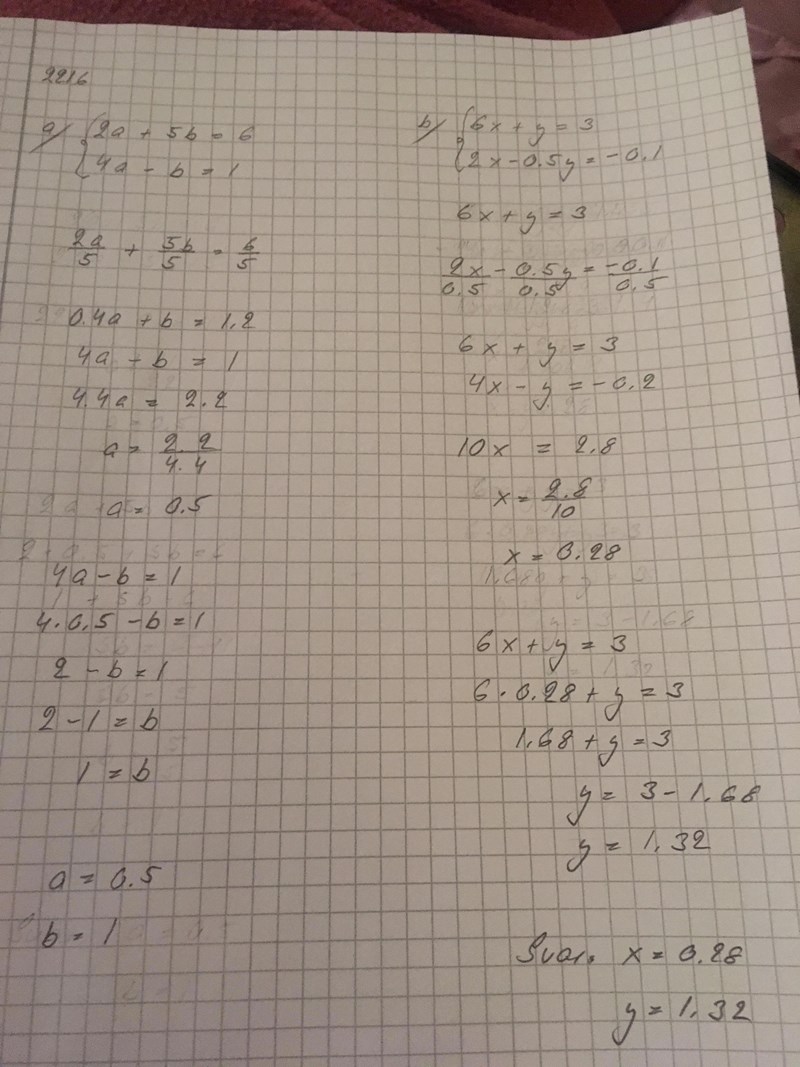 2216
a) 2a + 5b = 6
4a - b = 1
2a/5 + 5b/5 = 6/5
0.4a + b = 1.2
4a - b = 1
4.4a = 2.2
a = 2.2/4.4
a = 0.5
4a - b = 1
4·0.5 - b = 1
2 - b = 1
2 - 1 = b
1 = b
a = 0.5
b = 1
b) 6x + y = 3
2x - 0.5y = -0.1
6x + y = 3
2x/0.5 - 0.5y/0.5 = -0.1/0.5
6x + y = 3
4x - y = -0.2
10x = 2.8
x = 2.8/10
x = 0.28
6x + y = 3
6·0.28 + y = 3
1.68 + y = 3
y = 3 - 1.68
y = 1.32
Svar. x = 0.28
y = 1.32